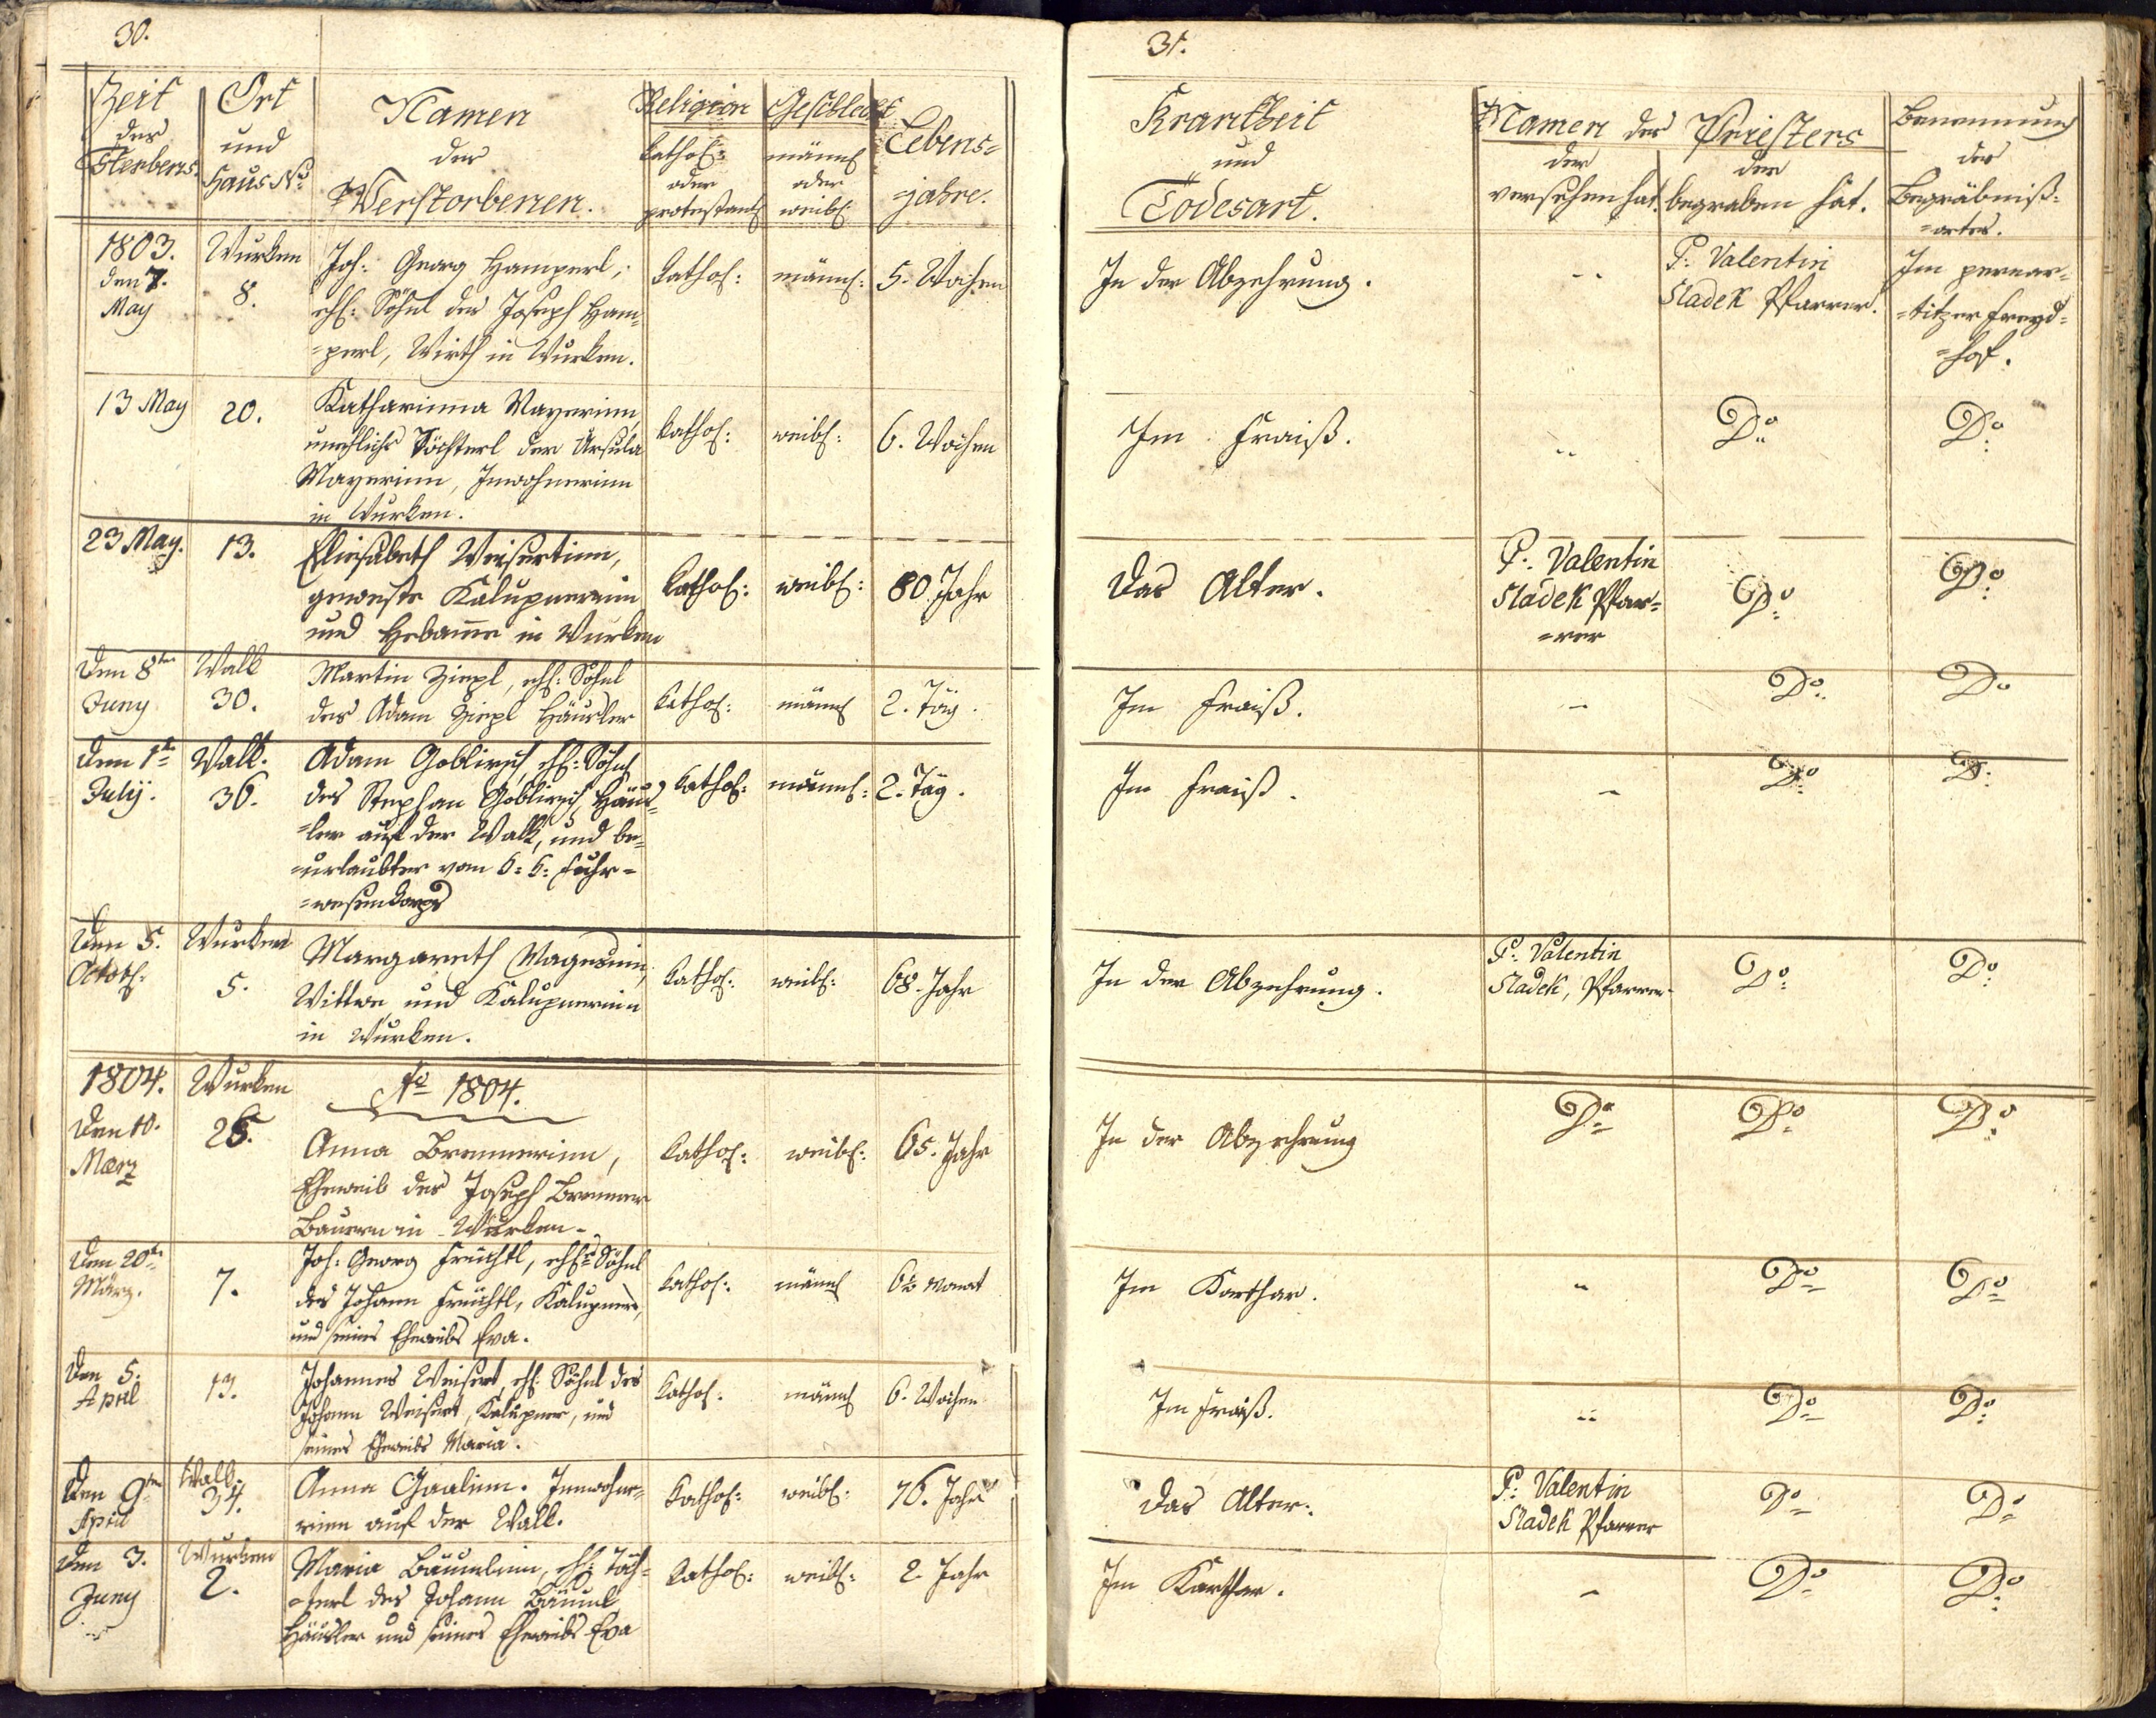 30.
Zeit
des
Sterbens.
Ort
und
Haus No.
Namen
der
Verstorbenen.
Religion
Kathol:
oder
protestant
Geschlecht
männl
oder
weibl
Lebens=
=jahre.
1803.
den 7.
May
Wurken
8.
Joh: Georg Hamperl,
ehl: Söhnl des Joseph Ham=
=perl, Wirth in Wurken.
Kathol:
männl:
5. Wochen
13 May
20.
Katharinna Mayerinn,
unehlichs Töchterl der Ursula
Mayerinn, Inwohnerinn
in Wurken.
Kathol:
weibl:
6. Wochen
23 May.
13.
Elisabeth Weisertinn,
geweste Kalupnerinn
und Hebame in Wurken
Kathol:
weibl:
80. Jahr
Den 8ten
Juny
Walk
30.
Martin Zirpl, ehl: Söhnl
des Adam Zirpl Häusler
Kathol:
männl
2. Täg.
Den 1te
July.
Walk.
36.
Adam Goblirsch, ehl: Söhnl
des Stephan Goblirsch, Häus=
=ler auf der Walk, und be=
=urlaubter vom k: k: Fuhr=
=wesenkorps
Kathol:
männl:
2. Täg.
Den 5.
Octob:
Wurken
5.
Margareth Wagnerinn,
Wittwe, und Kalupnerinn
in Wurken.
Kathol:
weibl:
68. Jahr
1804.
Den 10.
Marz
Wurken
26.
Ao 1804.
Anna Brennerinn,
Eheweib des Joseph Brenner
Bauern in Wurken.
Kathol:
weibl:
65. Jahr
Den 20te
März.
7.
Joh: Georg Früchtl, ehl: Söhnl
des Johann Früchtl, Kalupners,
und seines Eheweibs Eva.
Kathol:
männl
Monat
Den 5.
April
13.
Johannes Weisert, ehl: Söhnl des
Johann Weisert, Kalupner, und
seines Eheweibs Maria.
Kathol:
männl
6. Wochen
Den 9ten
April
Walk.
34.
Anna Gaalinn. Innwohne=
rinn auf der Walk.
Kathol:
weibl:
76. Jahr
Den 3.
Juny
Wurken
2.
Maria Bäumlinn, ehl: Töch=
=terl des Johann Bäuml
Häusler und seines Eheweibs Eva
Kathol:
weibl:
2. Jahr
31.
Krankheit
und
Todesart.
Namen des Priesters
der
versehen hat.
der
begraben hat.
Benennung
des
Begräbniß=
=ortes.
In der Abzehrung.
P: Valentin
Sladek Pfarrer.
Im pernar=
=titzer Freyd=
=hof.
Im Fraiß.
Do
Do
Das Alter.
P: Valentin
Sladek Pfar=
=rer
Do
Do
Im Fraiß.
Do
Do
Im Fraiß.
Do
Do
In der Abzehrung.
P: Valentin
Sladek, Pfarrer
Do
Do
In der Abzehrung
Do
Do
Do
Im Karthar.
Do
Do
Im Fraiß.
Do
Do
Das Alter.
P: Valentin
Sladek Pfarrer
Do
Do
Im Karthar.
Do
Do